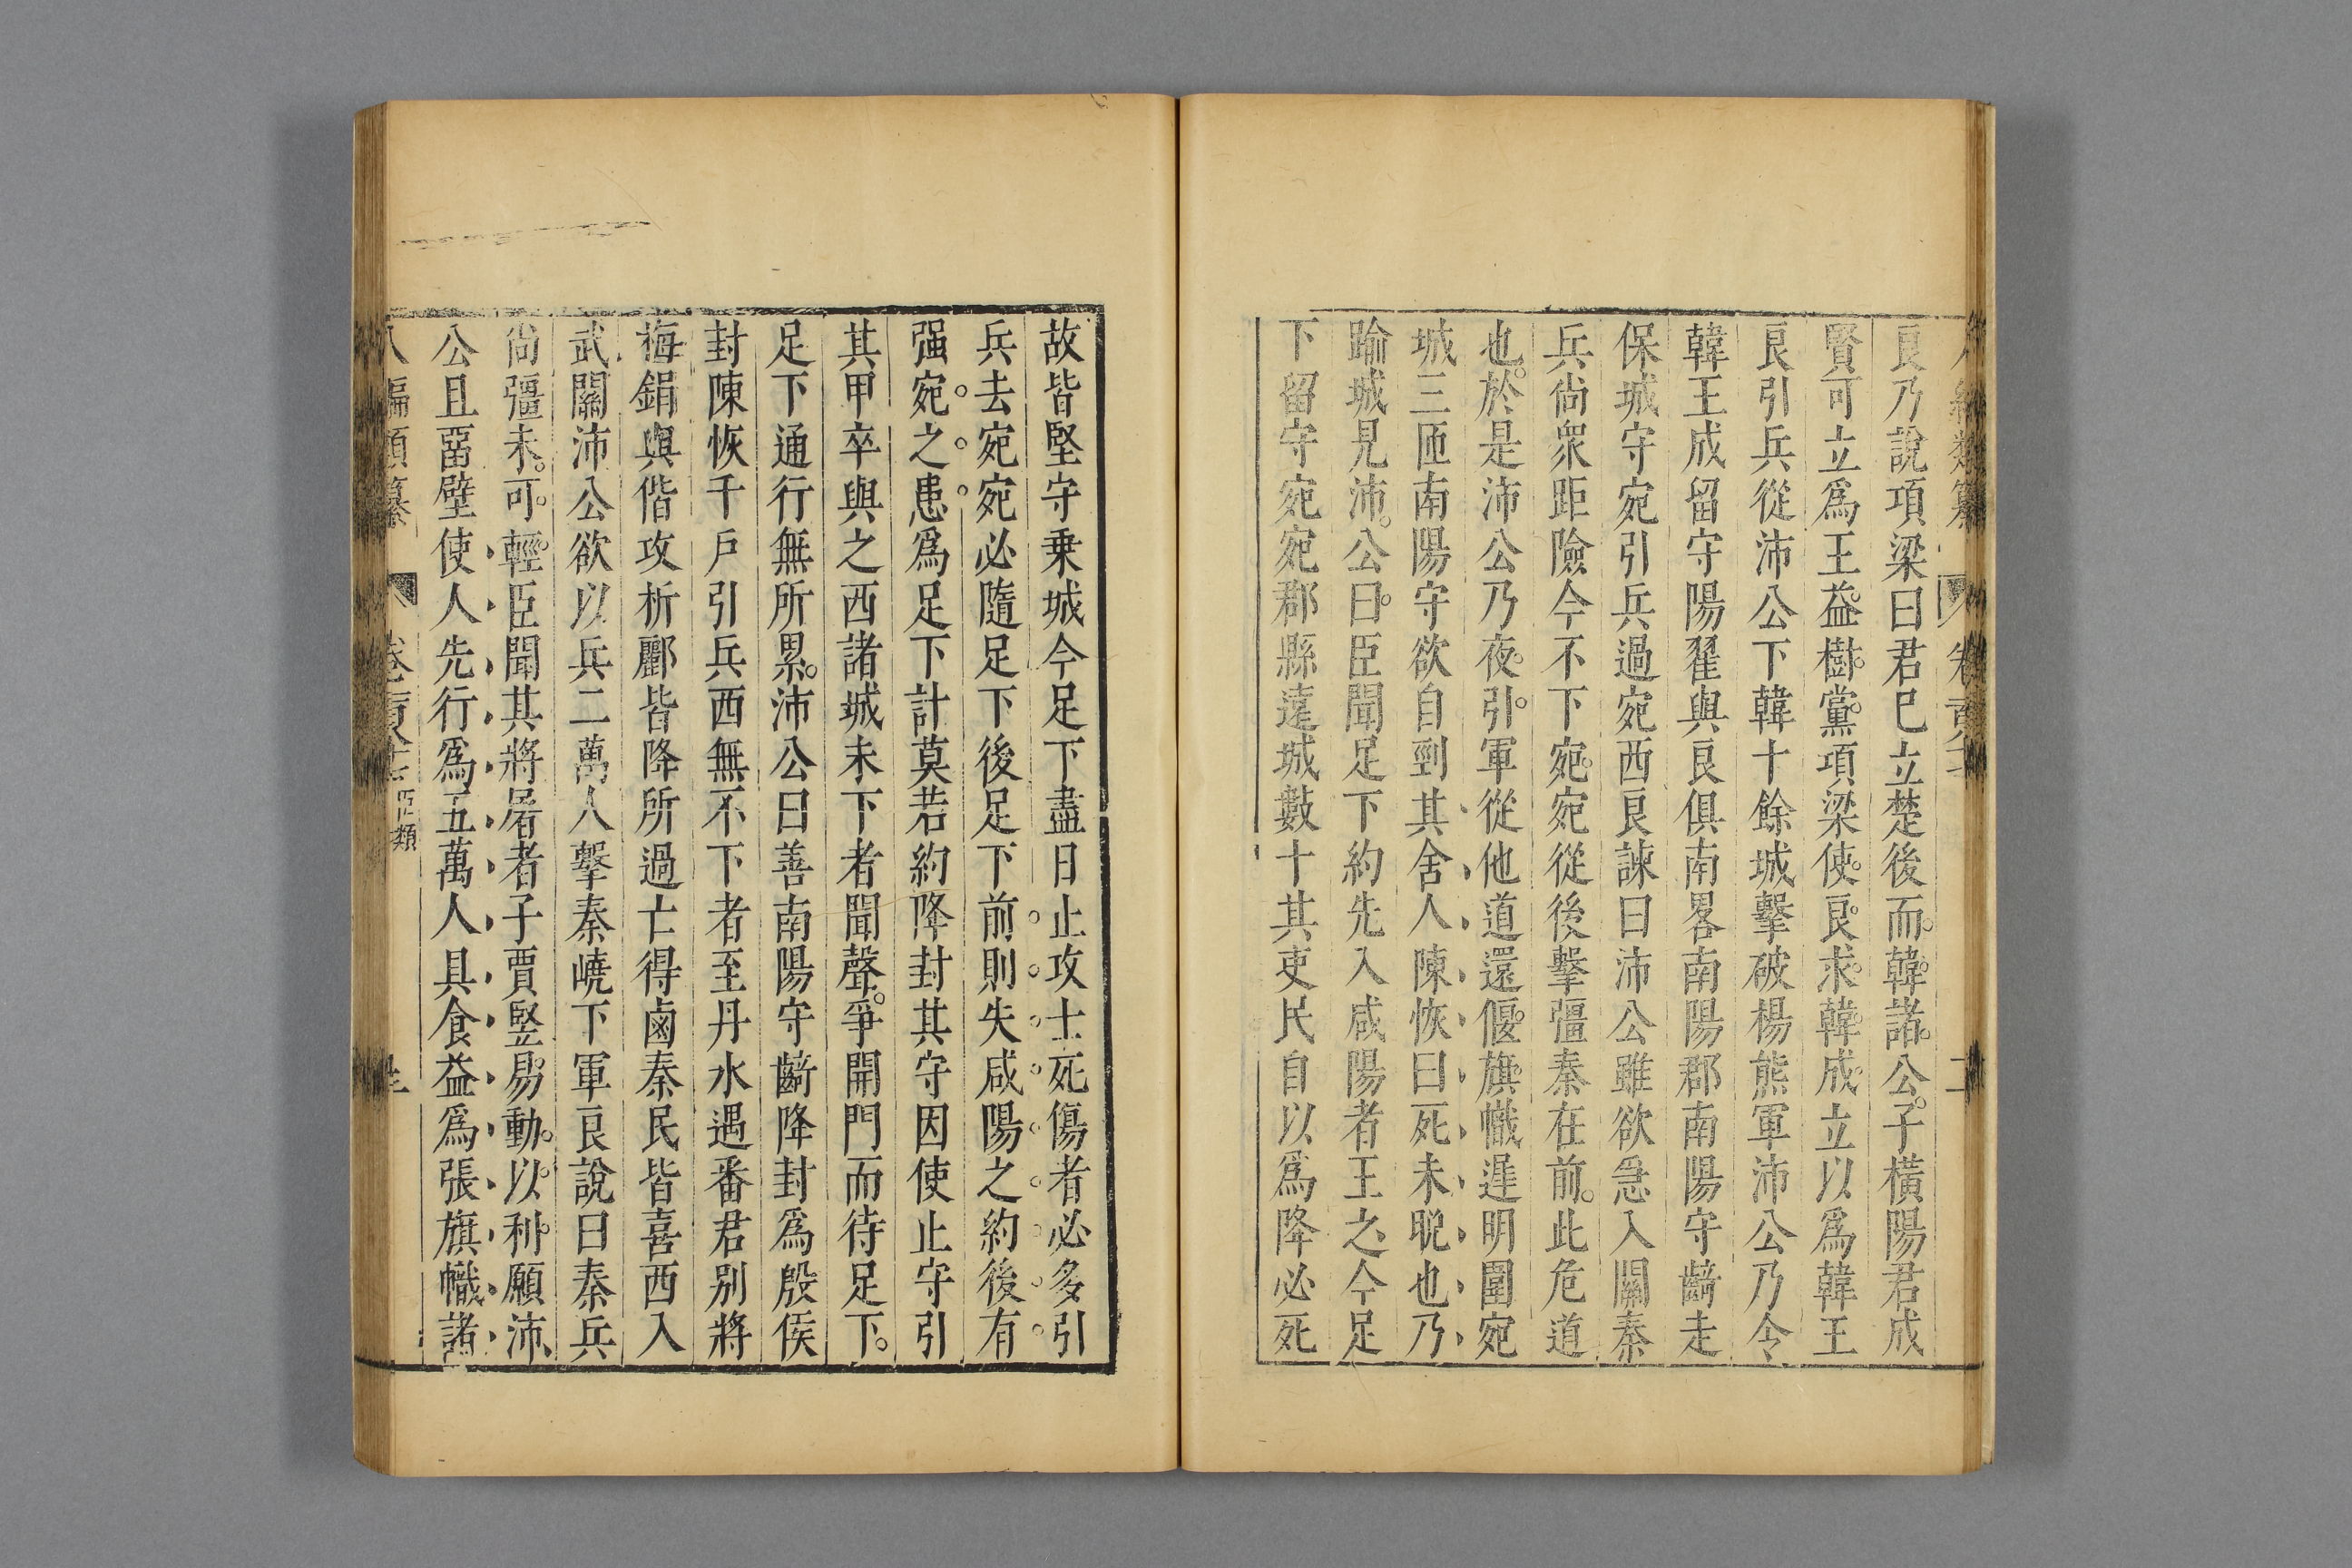 良乃說項梁曰君已立楚後而韓諸公子橫陽君成
賢可立爲王益樹黨項梁使良求韓成立以爲韓王
良引兵從沛公下韓十餘城擊破楊熊軍沛公乃令
韓王成留守陽翟與良俱南畧南陽郡南陽守齮走
保城守宛引兵過宛西良諫曰沛公雖欲急入關秦
兵尙衆距險今不下宛宛從後擊彊秦在前此危道
也於是沛公乃夜引軍從他道還偃旗幟遲明圍宛
城三匝南陽守欲自剄其舍人陳恢曰死未晩也乃
踰城見沛公曰臣聞足下約先入咸陽者王之今足
下留守宛宛郡縣連城數十其吏民自以爲降必死
故皆堅守乗城今足下盡日止攻士死傷者必多引
兵去宛宛必隨足下後足下前則失咸陽之約後有
强宛之患爲足下計莫若約降封其守因使止守引
其甲卒與之西諸城未下者聞聲爭開門而待足下
足下通行無所累沛公曰善南陽守齮降封爲殷侯
封陳恢千戶引兵西無不下者至丹水遇番君别將
梅鋗與偕攻析酈皆降所過亡得鹵秦民皆喜西入
武關沛公欲以兵二萬人擊秦嶢下軍良說曰秦兵
尙彊未可輕臣聞其將屠者子賈竪易動以利願沛
公且畱壁使人先行爲五萬人具食益爲張旗幟諸
八編類纂 卷 臣類